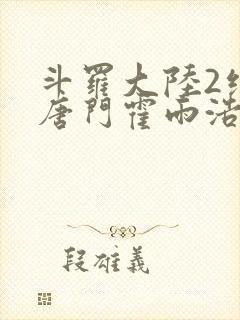 斗羅大陸2
唐門霍雨浩
段雄義